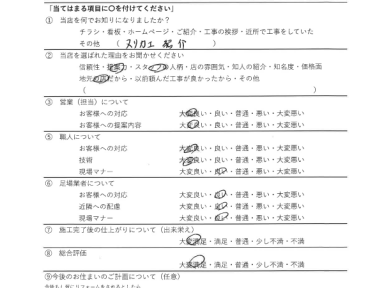 「当てはまる項目に〇を付けてください」
① 当店を何でお知りになりましたか？
チラシ・看板・ホームページ・ご紹介・工事の挨拶・近所で工事をしていた
その他 （ ヌリカエ 紹介 ）
② 当店を選ばれた理由をお聞かせください
信頼性・提案力・スタッフの人柄・店の雰囲気・知人の紹介・知名度・価格面
地元の店だから・以前頼んだ工事が良かったから・その他
（ ）
③ 営業（担当）について
お客様への対応 大変良い・良い・普通・悪い・大変悪い
お客様への提案内容 大変良い・良い・普通・悪い・大変悪い
⑤ 職人について
お客様への対応 大変良い・良い・普通・悪い・大変悪い
技術 大変良い・良い・普通・悪い・大変悪い
現場マナー 大変良い・良い・普通・悪い・大変悪い
⑥ 足場業者について
お客様への対応 大変良い・良い・普通・悪い・大変悪い
近隣への配慮 大変良い・良い・普通・悪い・大変悪い
現場マナー 大変良い・良い・普通・悪い・大変悪い
⑦ 施工完了後の仕上がりについて（出来栄え）
大変満足・満足・普通・少し不満・不満
⑧ 総合評価
大変満足・満足・普通・少し不満・不満
⑨今後のお住まいのご計画について（任意）